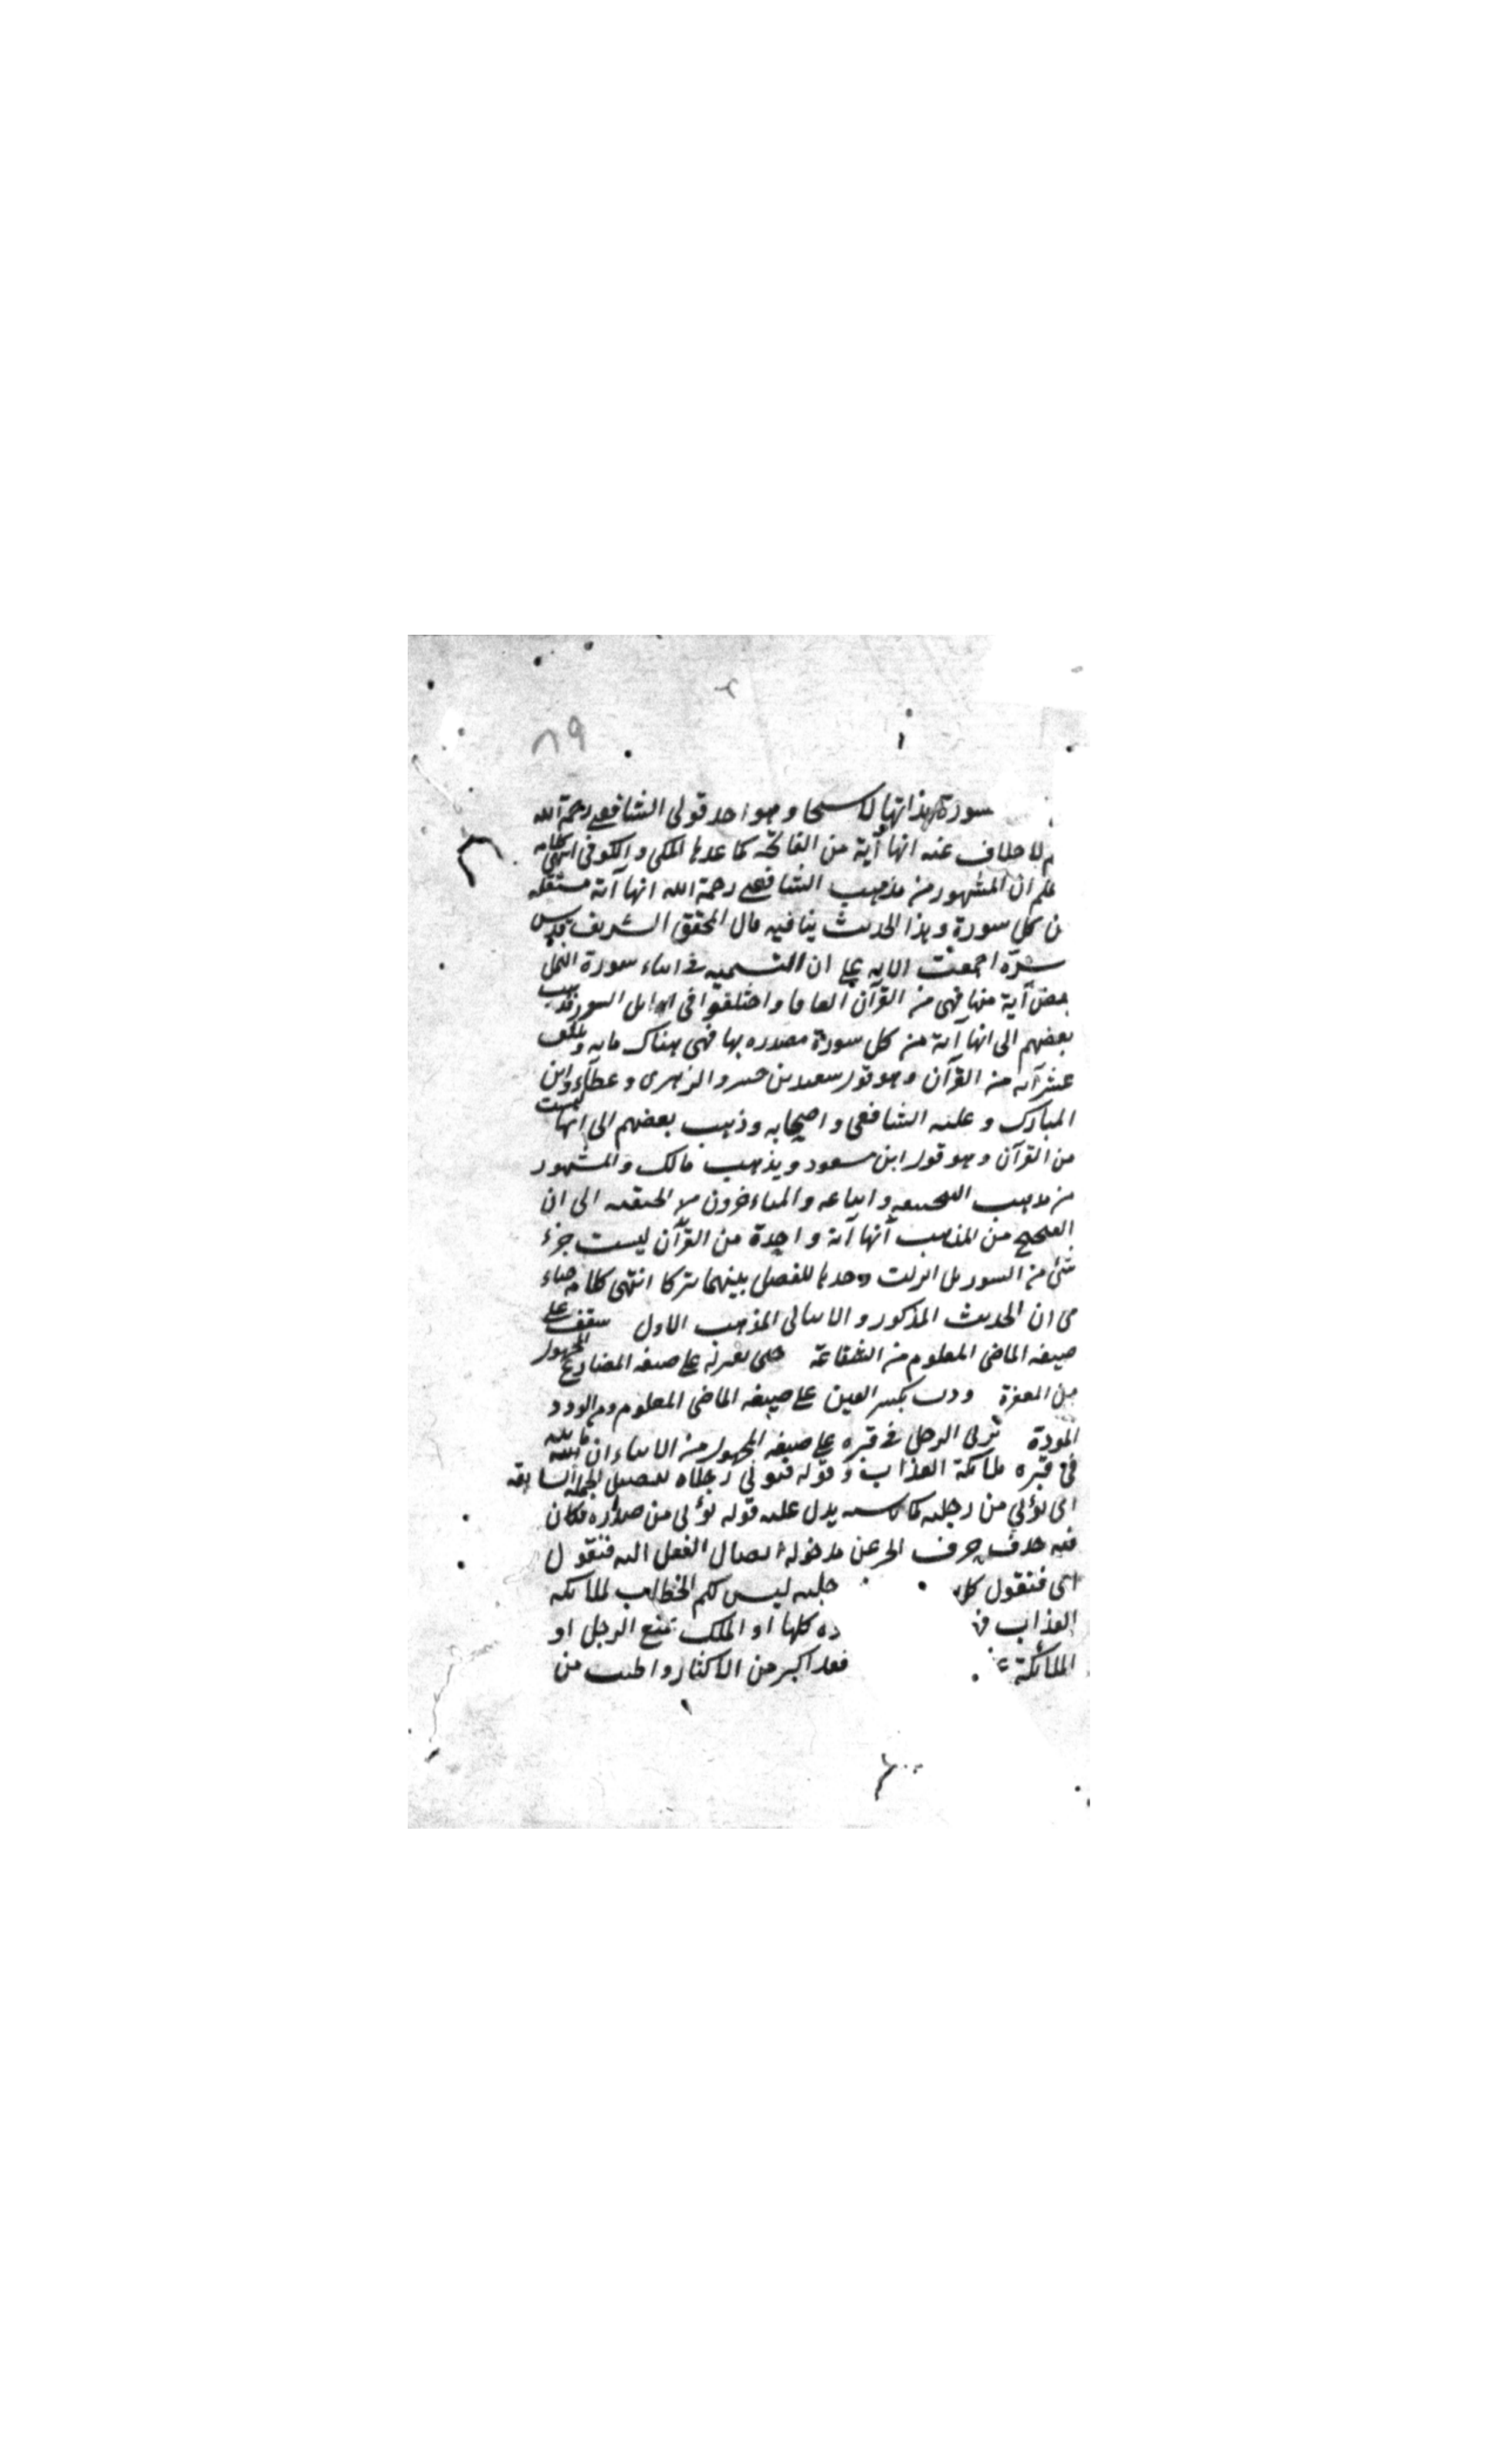 ٨٩
سورة بهذا انتهى وهو احد قولى الشافعى رحمة الله
لا خلاف عنه انها آية من الفاتحة كما عدها المكى والكوفى انتهى كلامه
علم ان المشهور من مذهب الشافعى رحمة الله انها آية مستقلة
من كل سورة وهذا الحديث ينافيه قال المحقق الشريف قدس
سره اجمعت الامة على ان التسمية فى اثناء سورة النمل
بعض آية منها فهى من القرآن اتفاقا واختلفوا فى اوايل السور فذهب
بعضهم الى انها آية من كل سورة مصدرة بها فهى هناك مايه وثلث
عشر آية من القرآن وهو قول سعيد بن جبير والزهرى وعطاء وابن
المبارك وعليه الشافعى واصحابه وذهب بعضهم الى انها ليست
من القرآن وهو قول ابن مسعود ومذهب مالك والمشهور
من مذهب ابى حنيفة واتباعه والمتاخرون من الحنفية الى ان
الصحيح من المذهب انها آية واحدة من القرآن ليست جزء
شئ من السور بل انزلت وحدها للفصل بينهما تبركا انتهى كلامه
ان الحديث المذكور والاتى المذهب الاول شفعت على
صيغة الماضى المعلوم من الشفاعة حتى على صيغة المضارع المجهول
من المغفرة وددت بكسر العين على صيغة الماضى المعلوم من الودد
المودة يؤتى الرجل فى قبره على صيغة المجهول من الاتيان
فى قبره ملائكة العذاب وقوله فتؤتى رجلاه تفصيل الجملة السابقة
اى يؤتى من رجليه يدل عليه قوله يؤتى من صدره فكان
فيه حذف حرف الجر عن مدخوله وايصال الفعل اليه فتقول
اى فتقول رجليه ليس لكم الخطاب لملائكة
العذاب كلها او الملك تمنع الرجل او
الملائكة فقد اكبر من الاكثار واطيب من